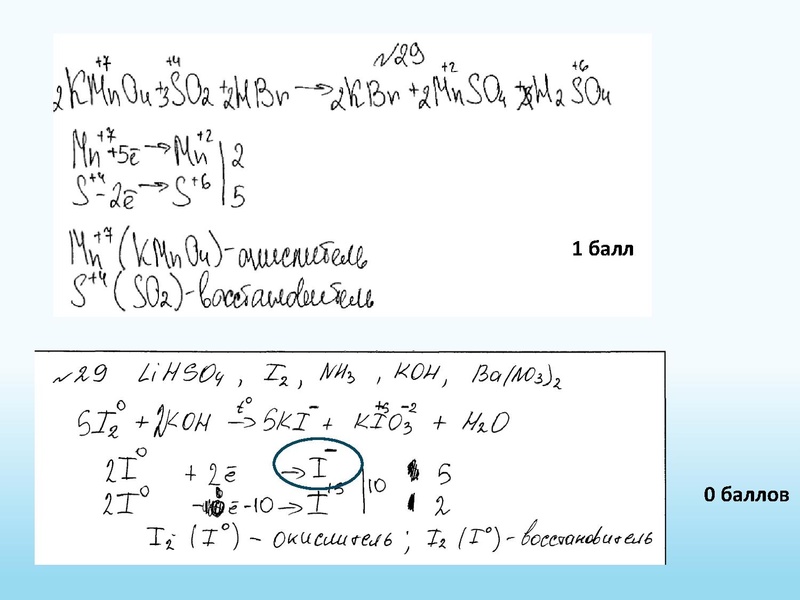 №29
+7 +4 +2 +6
2KMnO4+3SO2+2HBr→2KBr+2MnSO4+H2SO4
Mn+7+5ē→Mn+2|2
S+4-2ē→S+6|5
Mn+7(KMnO4)-окислитель
S+4(SO2)-восстановитель
1 балл
№29 LiHSO4, I2, NH3, KOH, Ba(NO3)2
5I2⁰+2KOH t°→5KI⁻+KI+5O3-2+H2O
2I⁰+2ē→I⁻|5
2I⁰ ē-10→I+5|10 2
I2(I⁰)-окислитель; I2(I⁰)-восстановитель
0 баллов